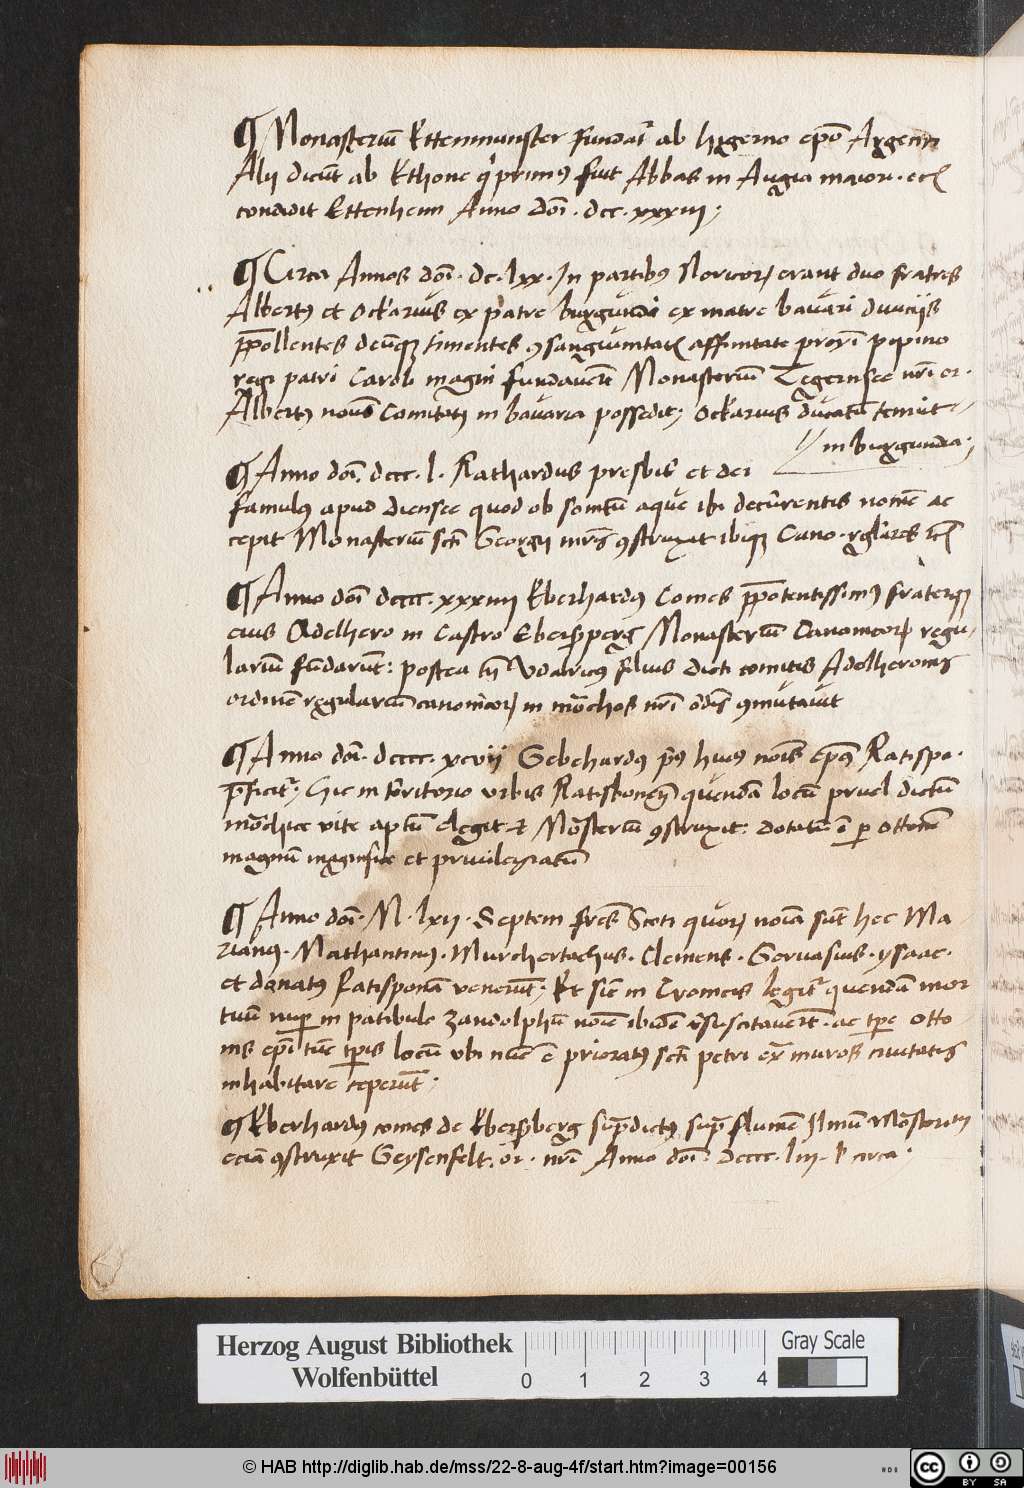 ¶ Monasteriū Ettenmunster fundat' ab hygerno epō Argenn
Alij dicūt ab Ethone q' prim9 fuit Abbas in Augia maiori. etc
condidit Ettenheim Anno doī. dcc. xxxiiij;
¶ Circa Annos doī. dc. lxx. In partib9 Noricor' erant duo fratres
Albert9 et Ockarius ex patre burgundi ex matre bavari diuicijs
p̄pollentes deūq; timentes 9sanguinitate affinitate proxī pipino
regi patri Caroli magni fundauerūt Monasterium Tegernsee nr̄i or.
Albert9 nouē Comitat9 in bavaria possedit; Ockarius ducatū tenuit
in burgundia;
¶ Anno doī. dccc. l. Rathardus presbit' et dei
famulus apud diensee quod ob sonitū aque ibi decurrentis nomē ac
cepit Monasterium sctī Georgij mr̄is 9struxit ibiq; Cano. rglares etc
¶ Anno doī dcccc. xxxiiij Eberhard9 Comes p̄potentissim9 fraterq;
eius Adelhero in Castro Ebersperg Monasterium Canonicor' regu-
larium fundarūt: postea tn̄ Vdalric9 filius dicti comitis Adelheronis
ordinē regularium canonicor' in mōchos nr̄i ordīs 9mutauit
¶ Anno doī. dcccc. xcvij Gebehard9 prim9 hui9 nōis eps Ratispo.
p̄ficit'; Hic in territorio urbis Ratisbonen̄ quendā locū pruel dictum
mōchice vite aptū elegit et Mōsterium 9struxit: dotatū ē p ottonē
magnū magnifice et priuilegiatū
¶ Anno doī. M. lxij. Septem frēs Scoti quor' noīa sūt hec Ma-
rianus. Mathantinus. Murchertachus. Clemens. Geruasius. ysaac.
et donatus ratisponā venerūt; Et sic in Cronicis legit' quendā mor
tuū nup in patibulo Zandolphū noīe ibidē resuscitauerūt. ac tpe otto-
nis epī tūc tpis locū vbi nūc ē priorat9 sctī petri ex̄ muros ciuitatis
inhabitare ceperūt;
¶ Eberhard9 comes de Ebersberg supdict9 sup flumē Ilmū Mōsterium
eciā 9struxit Geysenfelt. or. nr̄i Anno doī. dcccc. liij. l circa.
Herzog August Bibliothek
Wolfenbüttel
0 1 2 3 4
Gray Scale
© HAB http://diglib.hab.de/mss/22-8-aug-4f/start.htm?image=00156
HAB
cc BY SA